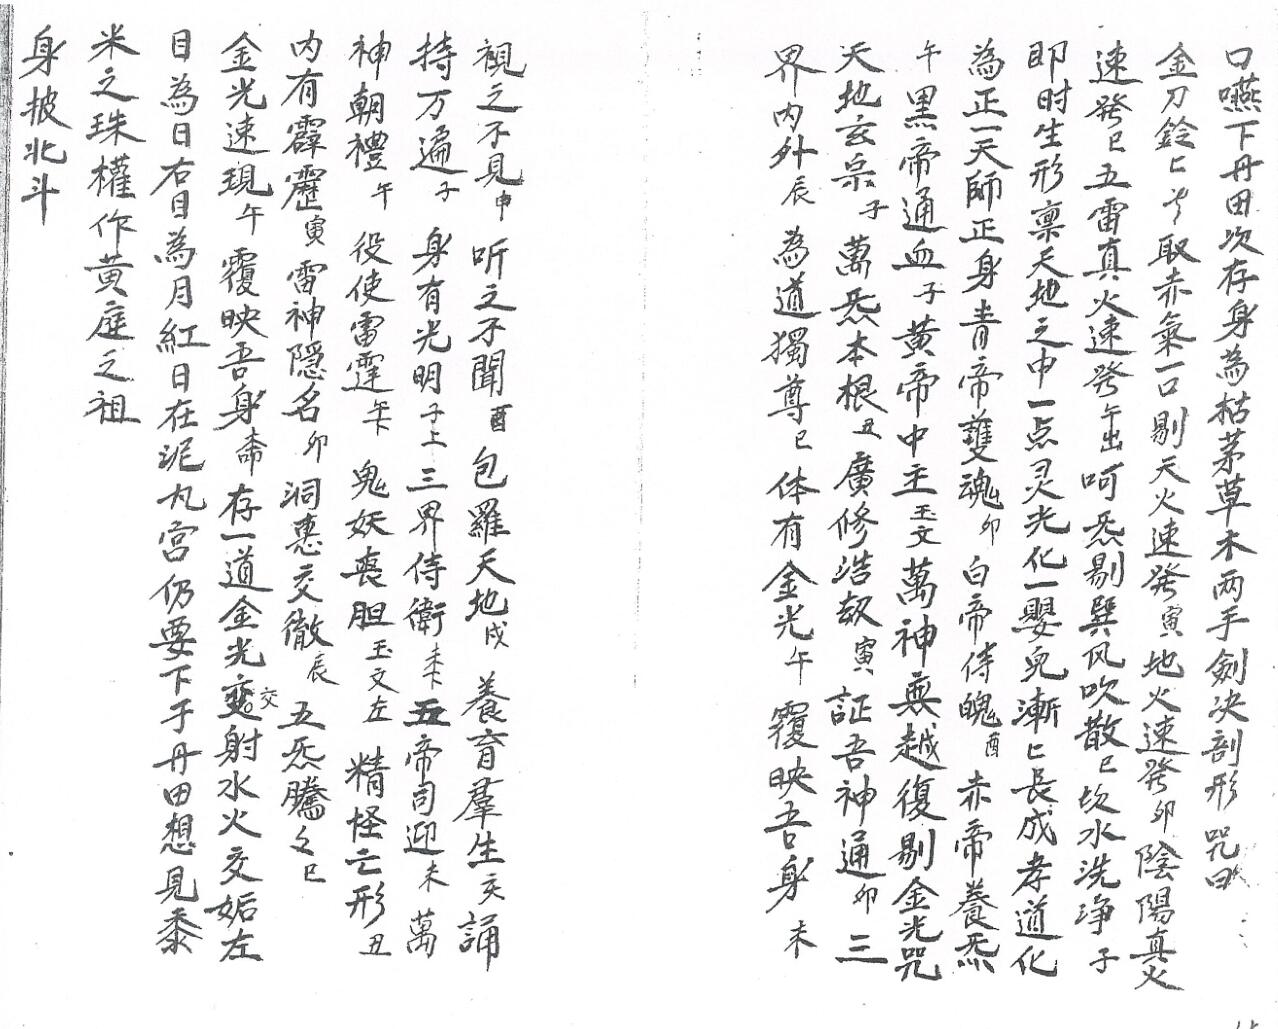 口嚥下丹田次存身為枯茅草木两手劍决剖形 咒曰
金刀鈴匕 取赤氣一口剔天火速發寅地火速發卯陰陽真火
速發巳五雷真火速發午出呵炁剔巽风吹散巳坎水洗净子
即时生形禀天地之中一点灵光化一嬰兒漸匕長成孝道化
為正一天師正身青帝䕶魂卯白帝侍魄酉赤帝養炁
午黑帝通血子黄帝中主玉文萬神無越復剔金光咒
天地玄宗子萬炁本根丑廣修浩劫寅証吾神通卯三
界内外辰為道獨尊巳体有金光午覆映吾身未
視之不見申听之不聞酉包羅天地戌養育羣生亥誦
持万遍子身有光明子上三界侍衛 五帝司迎未萬
神朝禮午役使雷霆 鬼妖喪胆玉文左精怪亡形丑
内有霹靂寅雷神隠名卯洞惠交徹辰五炁騰匕巳
金光速現午覆映吾身 存一道金光交射水火交姤左
目為日右目為月紅日在泥丸宫仍要下于丹田想見黍
米之珠權作黄庭之祖
身披北斗